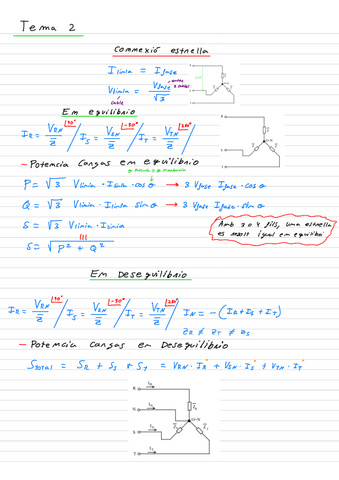 Tema 2
Connexió estrella
I línia = I fase
V línia = V fase / √3
En equilibrio
I_R = V_RN / Z |30° I_S = V_SN / Z |-30° I_T = V_TN / Z
- Potencia Cargas em equilibrio
P = √3 V línia · I línia · cos θ → 3 V fase I fase · cos θ
Q = √3 V línia · I línia sin θ → 3 V fase I fase · sin θ
S = √3 V línia · I línia
S = √P² + Q²
Amb 3 o 4 fils, una estrella es resolt igual em equilibri
En Desequilibrio
I_R = V_RN / Z I_S = V_SN / Z |-30° I_T = V_TN / Z I_N = -(I_R + I_S + I_T)
Z_R ≠ Z_T ≠ Z_S
- Potencia Cargas em Desequilibrio
S total = S_R + S_S + S_T = V_RN · I_R* + V_SN · I_S* + V_TN · I_T*